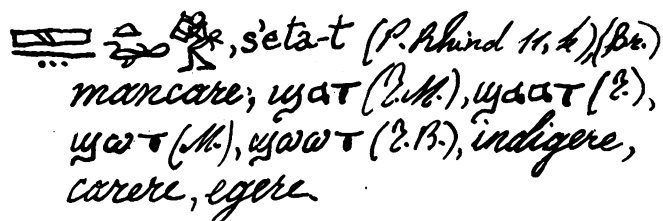 , s'eta-t (P. Rhind 11, k), (Br.)
mancare; ϣⲁⲧ (T.M.), ϣⲁⲁⲧ (T.),
ϣⲱⲧ (M.), ϣⲱⲱⲧ (T.B.), indigere,
carere, egere